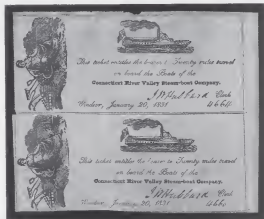 This ticket entitles the bearer to Twenty miles travel
on board the Boats of the
Connecticut River Valley Steam-boat Company.
J P Hubbard Clerk
Windsor, January 20, 1831 4664
This ticket entitles the bearer to Twenty miles travel
on board the Boats of the
Connecticut River Valley Steam-boat Company.
Hubbard Clerk
Windsor, January 20, 1831